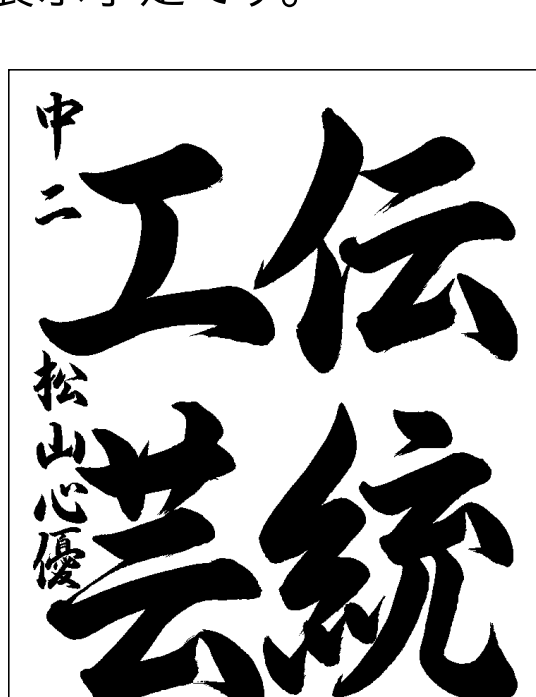 伝統
工芸
中二 松山心優